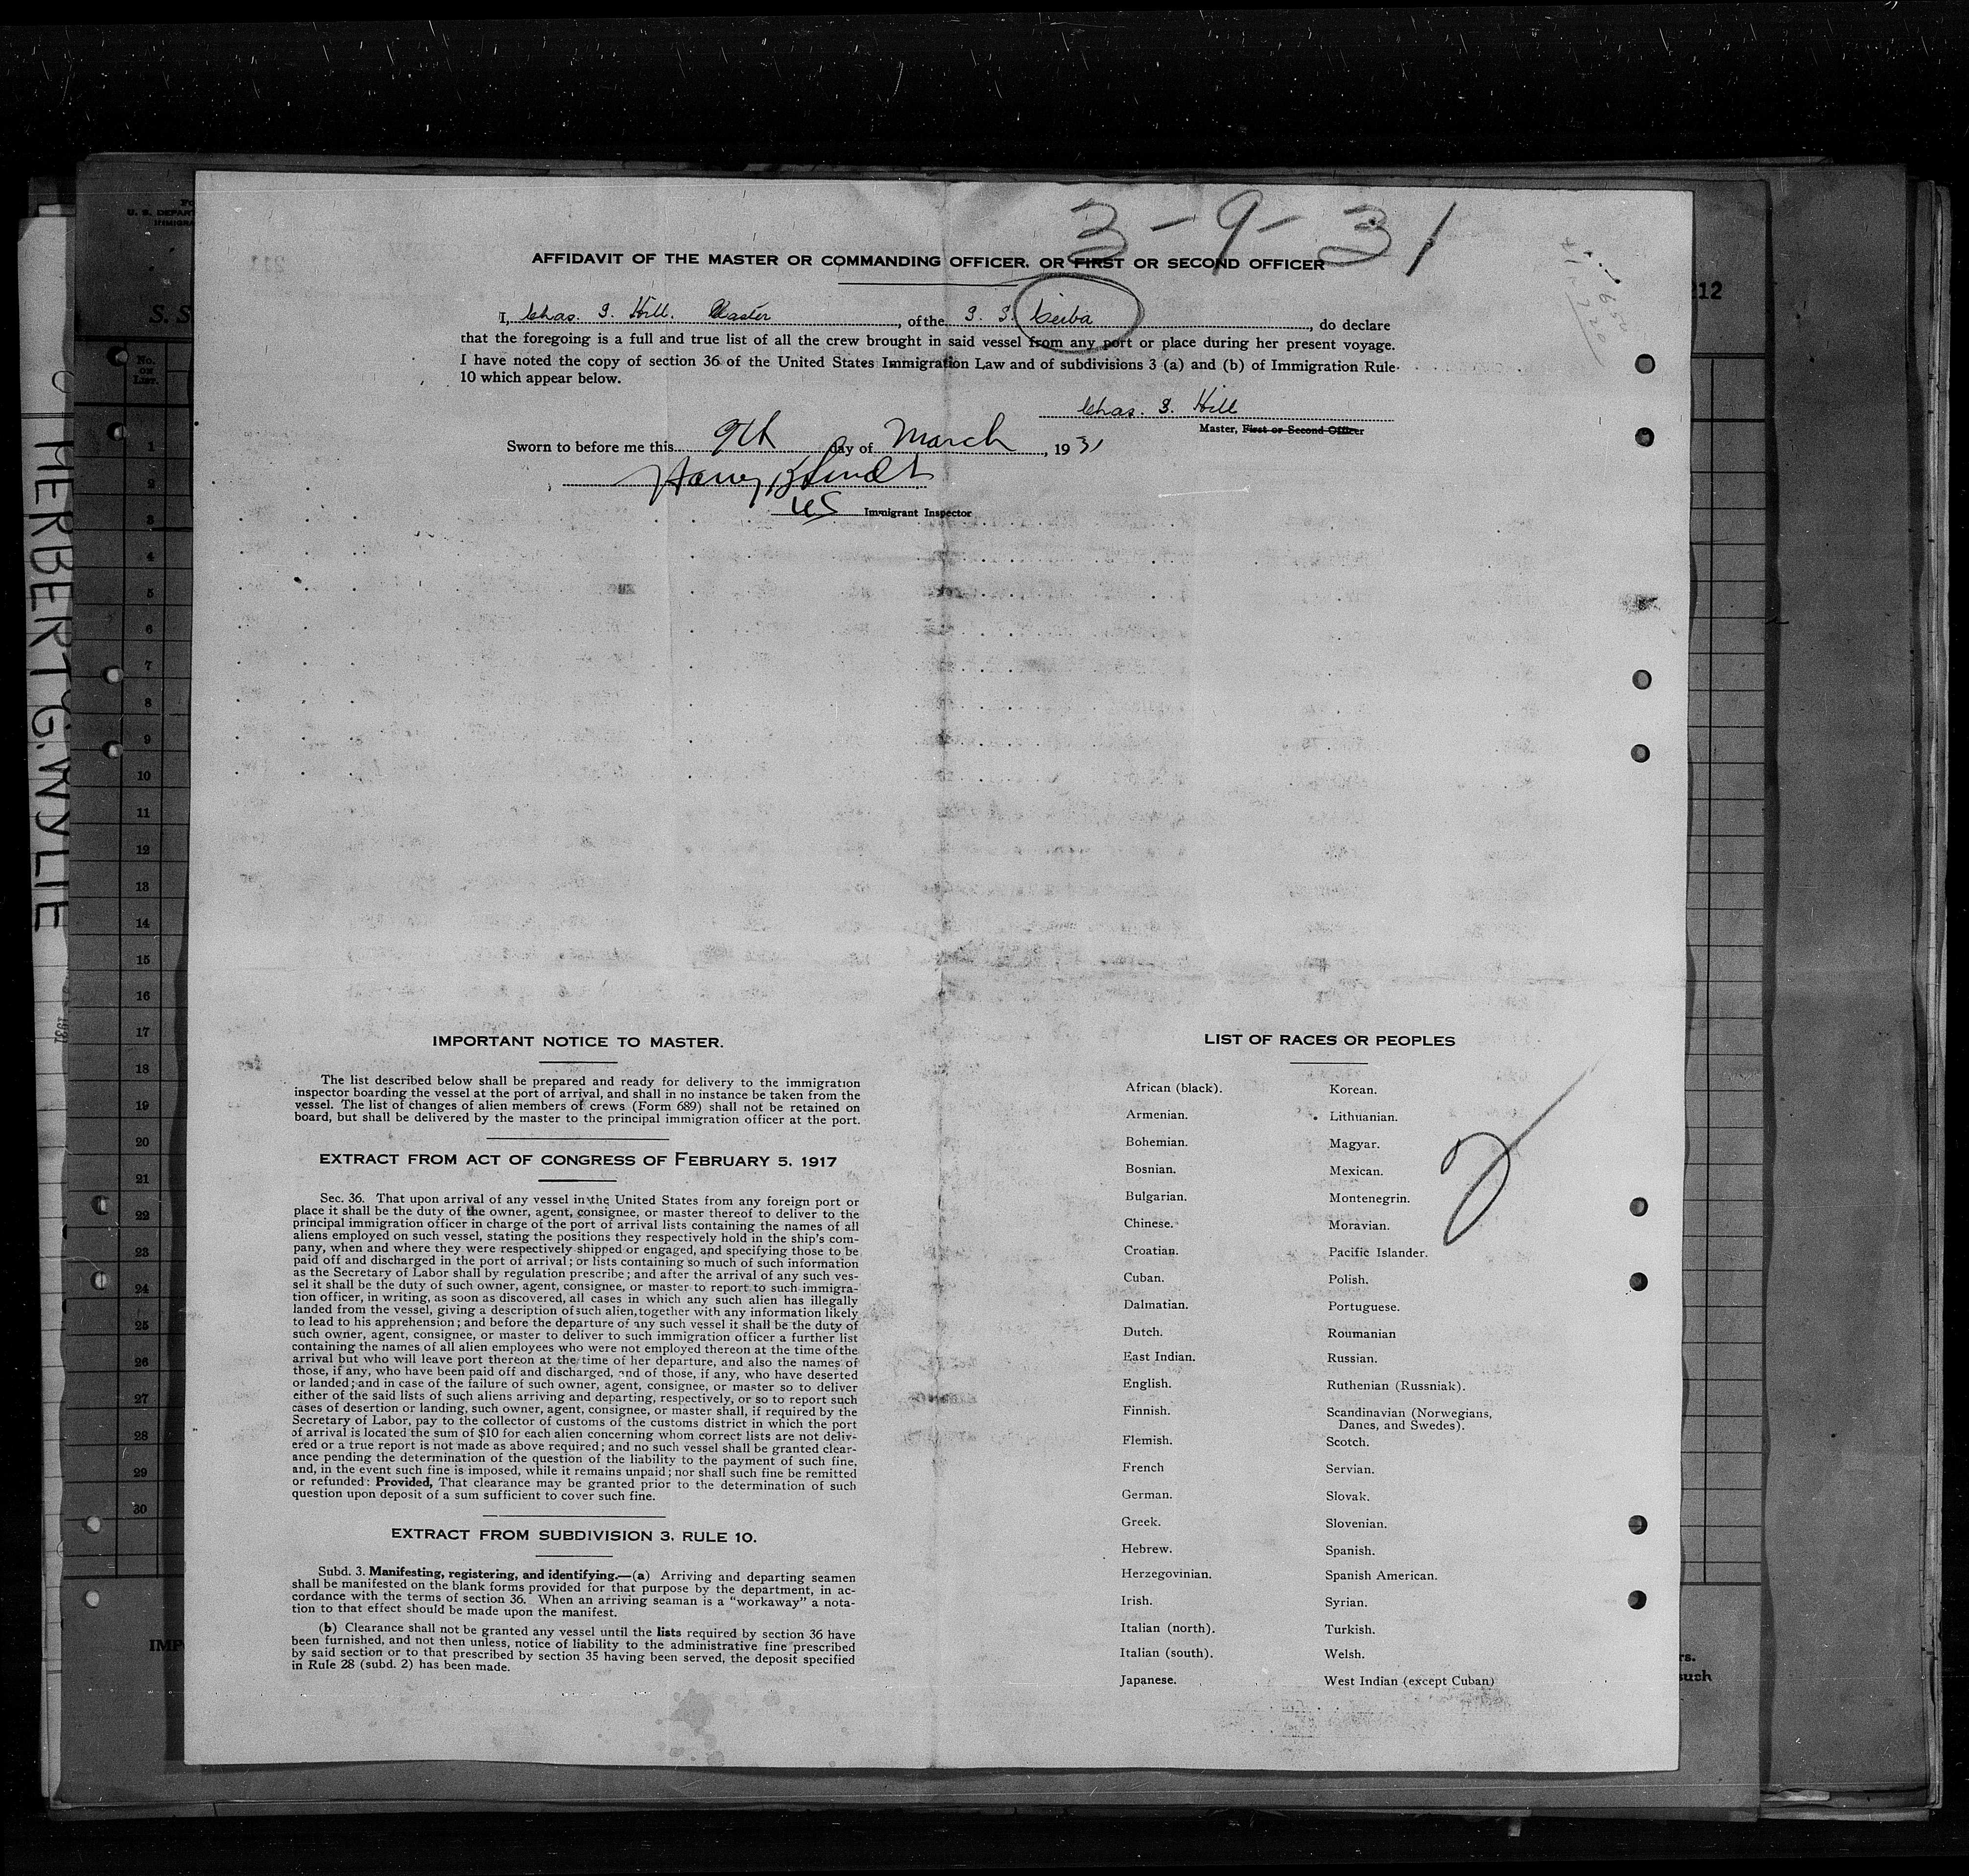 3-9-31
AFFIDAVIT OF THE MASTER OR COMMANDING OFFICER, OR FIRST OR SECOND OFFICER
I, Chas. S. Hill. Master, of the S. S. Ceiba, do declare
that the foregoing is a full and true list of all the crew brought in said vessel from any port or place during her present voyage.
I have noted the copy of section 36 of the United States Immigration Law and of subdivisions 3 (a) and (b) of Immigration Rule
10 which appear below.
Chas. S. Hill
Master, First or Second Officer
Sworn to before me this 9th day of March, 1931
Harry
US Immigrant Inspector
IMPORTANT NOTICE TO MASTER.
The list described below shall be prepared and ready for delivery to the immigration
inspector boarding the vessel at the port of arrival, and shall in no instance be taken from the
vessel. The list of changes of alien members of crews (Form 689) shall not be retained on
board, but shall be delivered by the master to the principal immigration officer at the port.
EXTRACT FROM ACT OF CONGRESS OF FEBRUARY 5, 1917
Sec. 36. That upon arrival of any vessel in the United States from any foreign port or
place it shall be the duty of the owner, agent, consignee, or master thereof to deliver to the
principal immigration officer in charge of the port of arrival lists containing the names of all
aliens employed on such vessel, stating the positions they respectively hold in the ship's com-
pany, when and where they were respectively shipped or engaged, and specifying those to be
paid off and discharged in the port of arrival; or lists containing so much of such information
as the Secretary of Labor shall by regulation prescribe; and after the arrival of any such ves-
sel it shall be the duty of such owner, agent, consignee, or master to report to such immigra-
tion officer, in writing, as soon as discovered, all cases in which any such alien has illegally
landed from the vessel, giving a description of such alien, together with any information likely
to lead to his apprehension; and before the departure of any such vessel it shall be the duty of
such owner, agent, consignee, or master to deliver to such immigration officer a further list
containing the names of all alien employees who were not employed thereon at the time of the
arrival but who will leave port thereon at the time of her departure, and also the names of
those, if any, who have been paid off and discharged, and of those, if any, who have deserted
or landed; and in case of the failure of such owner, agent, consignee, or master so to deliver
either of the said lists of such aliens arriving and departing, respectively, or so to report such
cases of desertion or landing, such owner, agent, consignee, or master shall, if required by the
Secretary of Labor, pay to the collector of customs of the customs district in which the port
of arrival is located the sum of $10 for each alien concerning whom correct lists are not deliv-
ered or a true report is not made as above required; and no such vessel shall be granted clear-
ance pending the determination of the question of the liability to the payment of such fine,
and, in the event such fine is imposed, while it remains unpaid; nor shall such fine be remitted
or refunded: Provided, That clearance may be granted prior to the determination of such
question upon deposit of a sum sufficient to cover such fine.
EXTRACT FROM SUBDIVISION 3, RULE 10.
Subd. 3. Manifesting, registering, and identifying.—(a) Arriving and departing seamen
shall be manifested on the blank forms provided for that purpose by the department, in ac-
cordance with the terms of section 36. When an arriving seaman is a "workaway" a nota-
tion to that effect should be made upon the manifest.
(b) Clearance shall not be granted any vessel until the lists required by section 36 have
been furnished, and not then unless, notice of liability to the administrative fine prescribed
by said section or to that prescribed by section 35 having been served, the deposit specified
in Rule 28 (subd. 2) has been made.
LIST OF RACES OR PEOPLES
African (black).
Armenian.
Bohemian.
Bosnian.
Bulgarian.
Chinese.
Croatian.
Cuban.
Dalmatian.
Dutch.
East Indian.
English.
Finnish.
Flemish.
French
German.
Greek.
Hebrew.
Herzegovinian.
Irish.
Italian (north).
Italian (south).
Japanese.
Korean.
Lithuanian.
Magyar.
Mexican.
Montenegrin.
Moravian.
Pacific Islander.
Polish.
Portuguese.
Roumanian
Russian.
Ruthenian (Russniak).
Scandinavian (Norwegians,
Danes, and Swedes).
Scotch.
Servian.
Slovak.
Slovenian.
Spanish.
Spanish American.
Syrian.
Turkish.
Welsh.
West Indian (except Cuban)
2
HERBERT G. WYLIE
U. S. DEPAR
IMMIGRA
S. S
No.
ON
LIST.
1
2
3
4
5
6
7
8
9
10
11
12
13
14
15
16
17
18
19
20
21
22
23
24
25
26
27
28
29
30
IMP
212
rs.
such